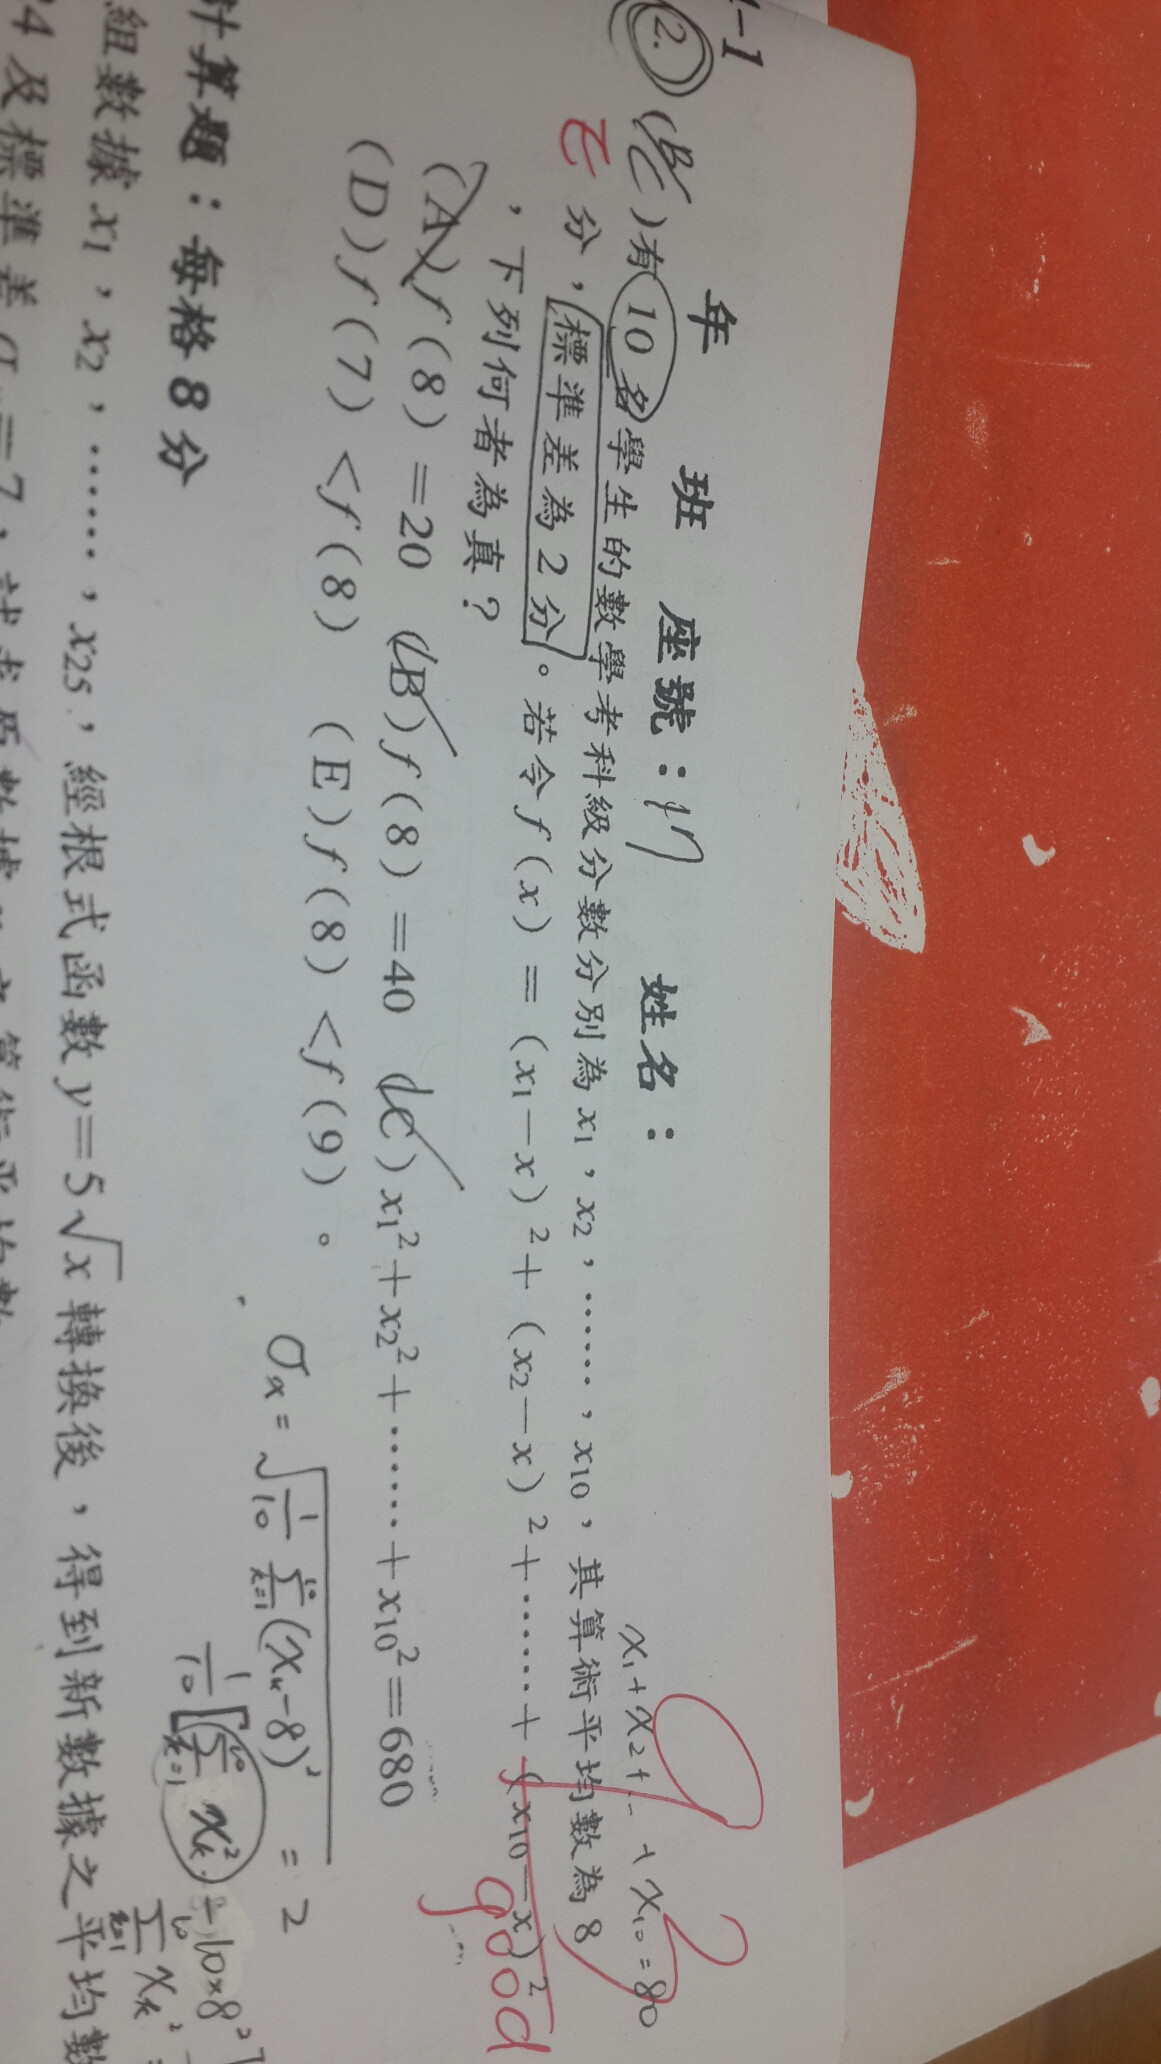 -1
年 班 座號：17 姓名：
x₁+x₂+…+x₁₀=80
92
good
2. (BC)有10名學生的數學考科級分數分別為x₁，x₂，……，x₁₀，其算術平均數為8
E 分，標準差為2分。若令f(x)=(x₁－x)²+(x₂－x)²+……+(x₁₀－x)²
，下列何者為真？
(A)f(8)=20 (B)f(8)=40 (C)x₁²+x₂²+……+x₁₀²=680
(D)f(7)<f(8) (E)f(8)<f(9)。
σₓ=√(1/10 Σₖ₌₁¹⁰(xₖ-8)²)=2
1/10[Σₖ₌₁¹⁰ xₖ²)-10×8²]
Σₖ₌₁¹⁰ xₖ²=
計算題：每格8分
組數據x₁，x₂，……，x₂₅，經根式函數y=5√x轉換後，得到新數據之平均數
4及標準差